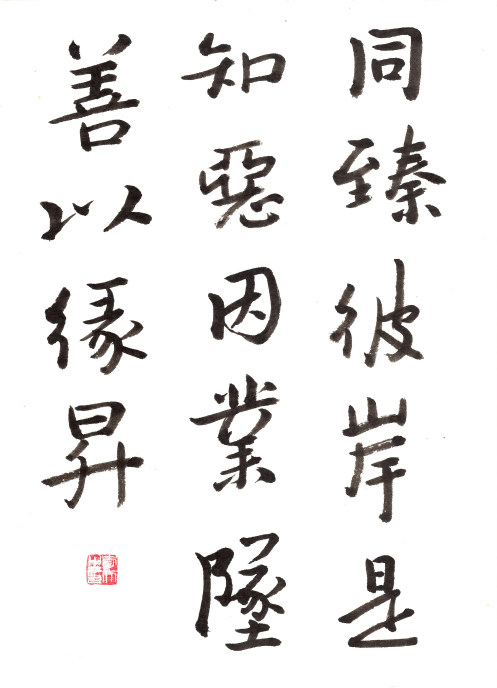 同臻彼岸是
知惡因業墜
善以緣昇